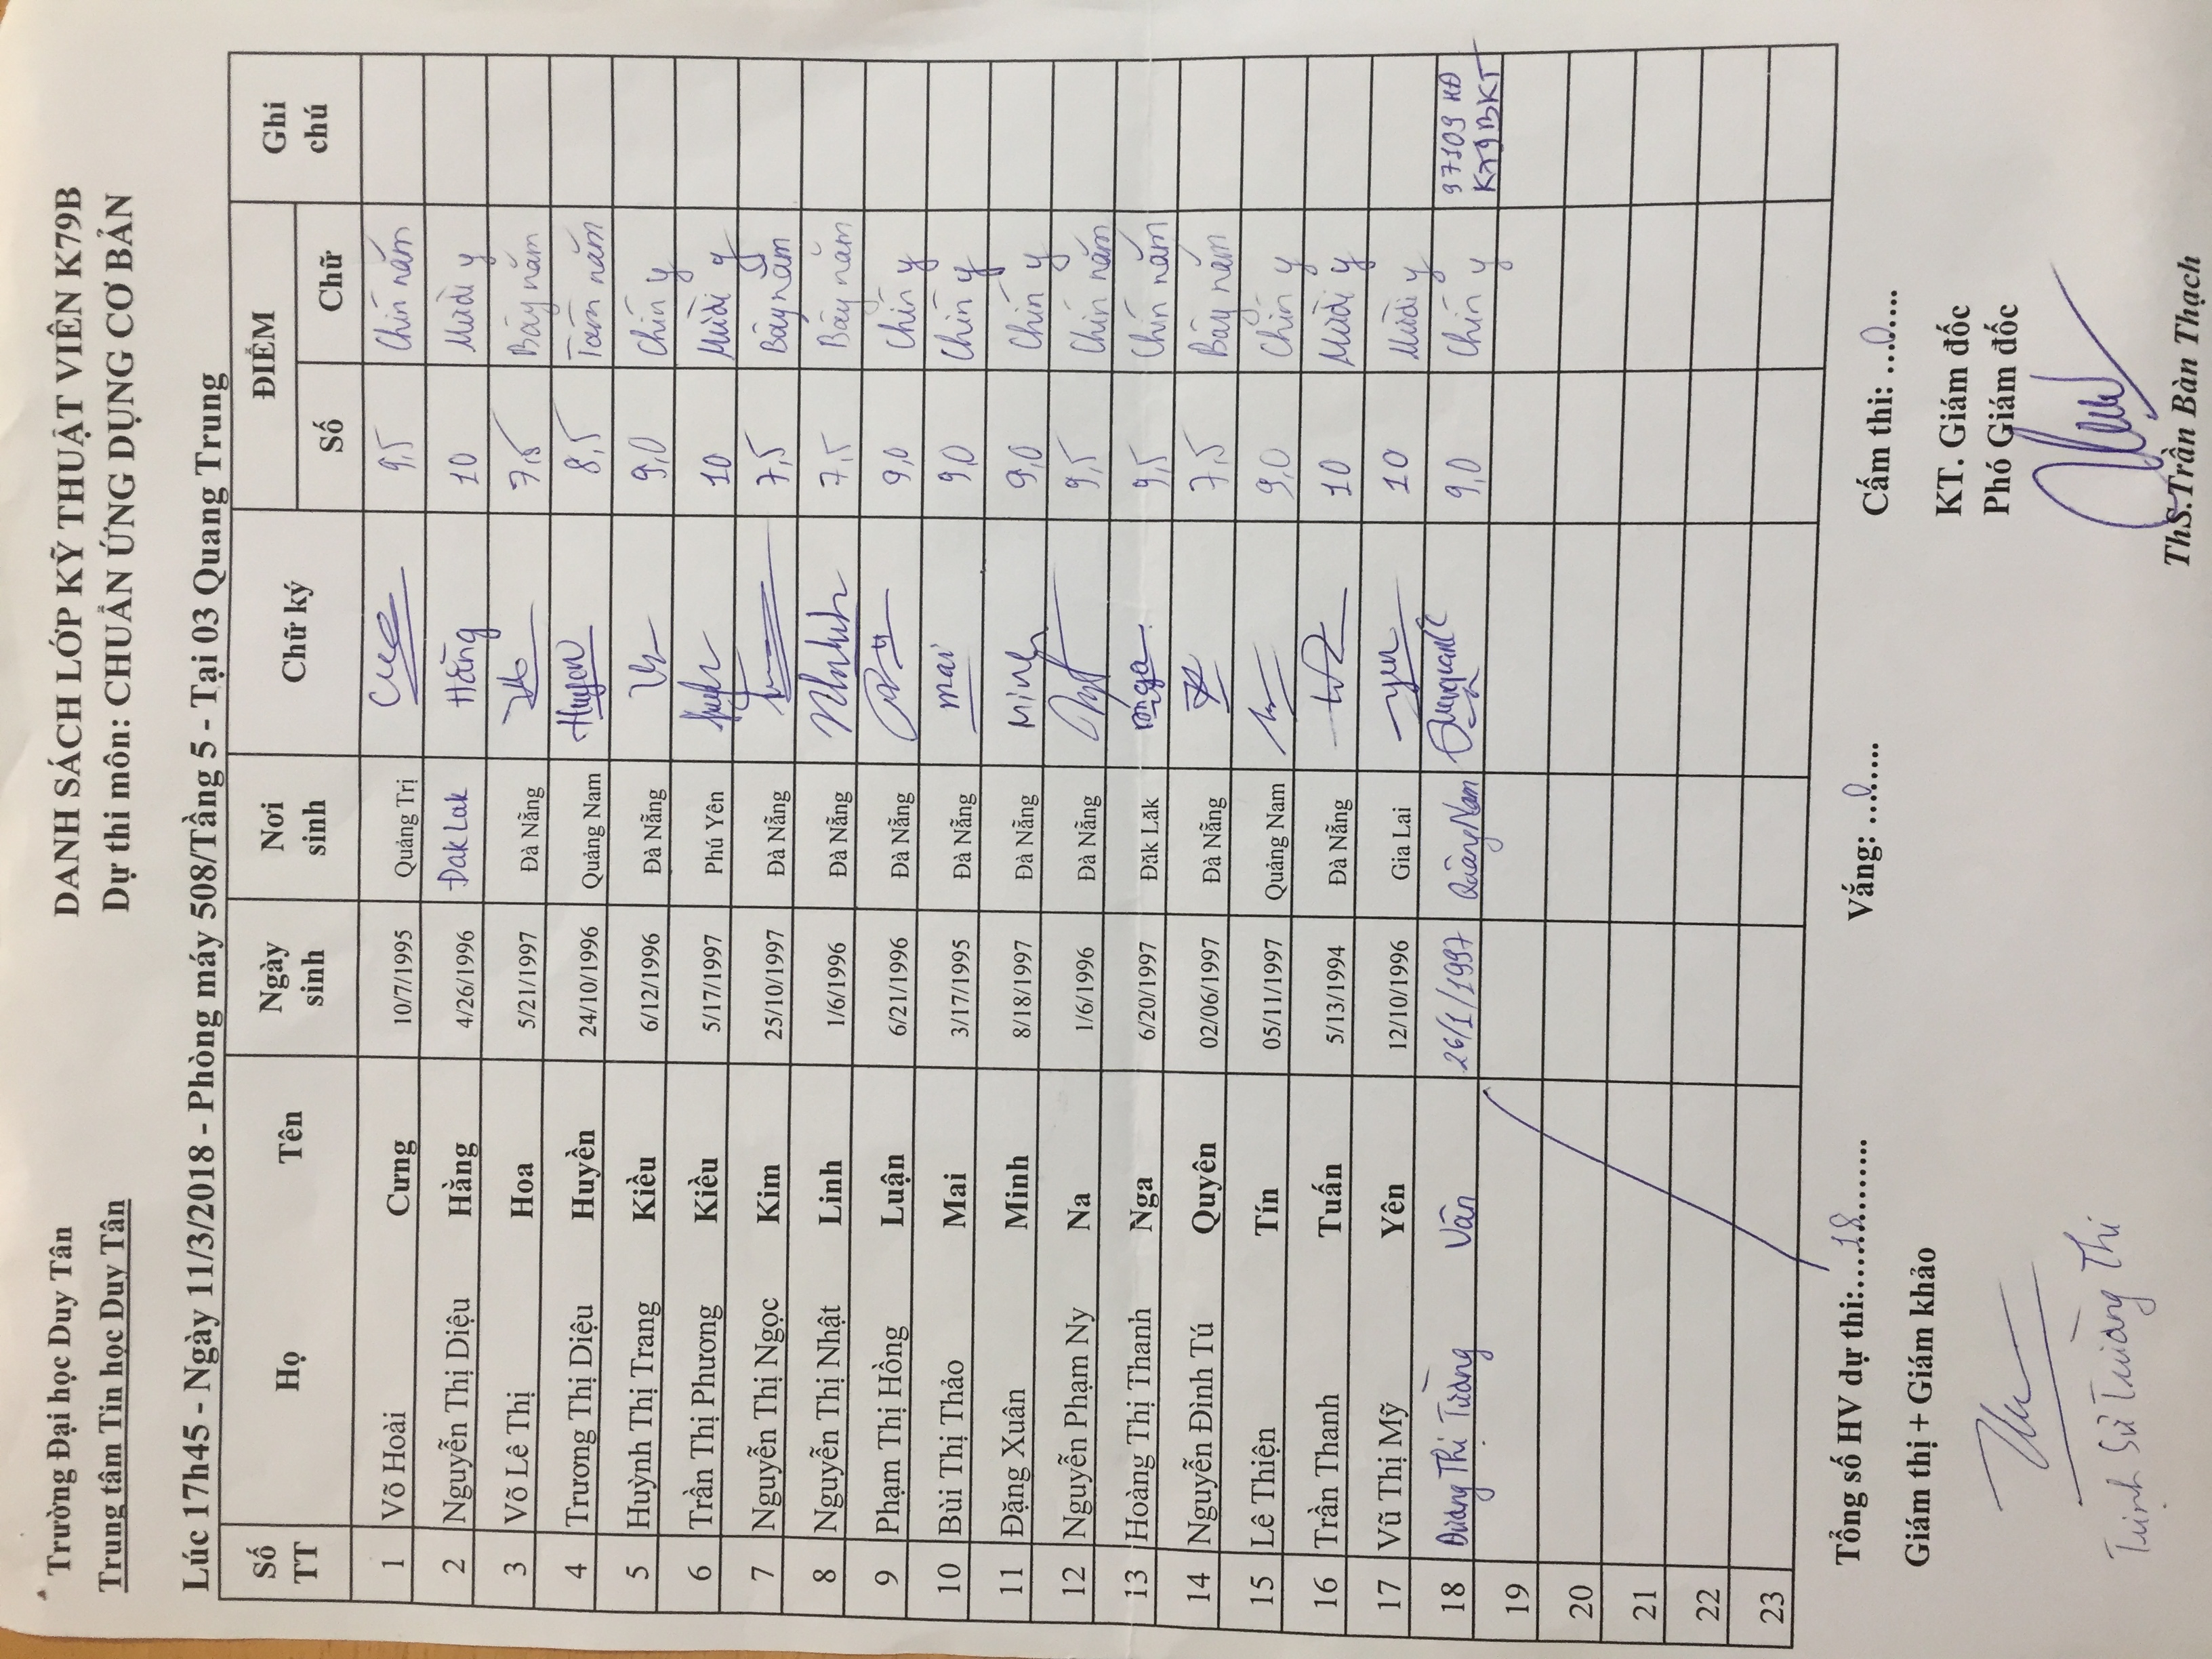 Trường Đại học Duy Tân
Trung tâm Tin học Duy Tân
DANH SÁCH LỚP KỸ THUẬT VIÊN K79B
Dự thi môn: CHUẨN ỨNG DỤNG CƠ BẢN
Lúc 17h45 - Ngày 11/3/2018 - Phòng máy 508/Tầng 5 - Tại 03 Quang Trung
Số TT Họ Tên Ngày sinh Nơi sinh Chữ ký ĐIỂM Số Chữ Ghi chú
1 Võ Hoài Cưng 10/7/1995 Quảng Trị 9,5 Chín năm
2 Nguyễn Thị Diệu Hằng 4/26/1996 Đak Lak Hằng 10 Mười y
3 Võ Lê Thị Hoa 5/21/1997 Đà Nẵng 7,5 Bảy năm
4 Trương Thị Diệu Huyền 24/10/1996 Quảng Nam Huyen 8,5 Tám năm
5 Huỳnh Thị Trang Kiều 6/12/1996 Đà Nẵng 9,0 Chín y
6 Trần Thị Phương Kiều 5/17/1997 Phú Yên 10 Mười y
7 Nguyễn Thị Ngọc Kim 25/10/1997 Đà Nẵng 7,5 Bảy năm
8 Nguyễn Thị Nhật Linh 1/6/1996 Đà Nẵng 7,5 Bảy năm
9 Phạm Thị Hồng Luận 6/21/1996 Đà Nẵng 9,0 Chín y
10 Bùi Thị Thảo Mai 3/17/1995 Đà Nẵng mai 9,0 Chín y
11 Đặng Xuân Minh 8/18/1997 Đà Nẵng Minh 9,0 Chín y
12 Nguyễn Phạm Ny Na 1/6/1996 Đà Nẵng 9,5 Chín năm
13 Hoàng Thị Thanh Nga 6/20/1997 Đăk Lăk nga 9,5 Chín năm
14 Nguyễn Đình Tú Quyên 02/06/1997 Đà Nẵng 7,5 Bảy năm
15 Lê Thiện Tín 05/11/1997 Quảng Nam 9,0 Chín y
16 Trần Thanh Tuấn 5/13/1994 Đà Nẵng 10 Mười y
17 Vũ Thị Mỹ Yên 12/10/1996 Gia Lai 10 Mười y
18 Dương Thị Tường Vân 26/1/1997 Quảng Nam 9,0 Chín y 97109 HĐ
K79BKT
19
20
21
22
23
Tổng số HV dự thi:....18.......... Vắng: ...0..... Cấm thi: ...0....
Giám thị + Giám khảo
KT. Giám đốc
Phó Giám đốc
Trịnh Sử Trường Thi
ThS.Trần Bàn Thạch